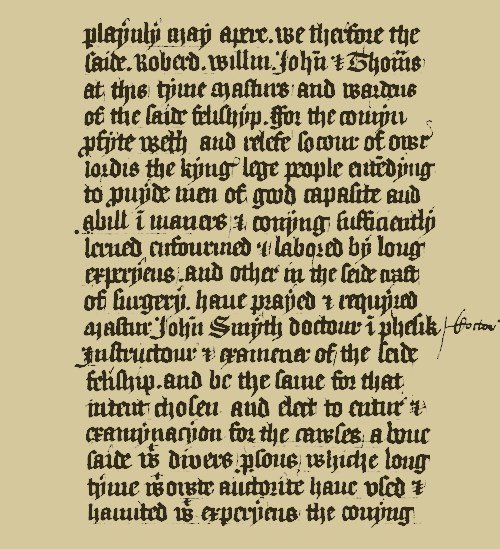 playnly may apere. we therfore the
saide. Roberd. willm. John̄ & Thom̄s
at this tyme masturs and wardens
of the saide felishyp. ffor the comyn
ꝓfyte welth and relefe socour of owr
lordis the kyng lege people entēdyng
to ꝓuyde men of good capasite and
abill ī maners & conyng sufficiently
lerned enfourmed & labored by long
experyens. and other in the seide craft
of surgery. haue prayed & requyred
mastur John̄ Smyth doctour ī phesik
Instructour & examener of the seide
feliship. and be the same for that
intent chosen and elect to entur &
examynacyon for the cawses a boue
saide wt divers ꝑsons whiche long
tyme wt owte auctorite haue vsed &
haunted wt experyens the conyng
doctor